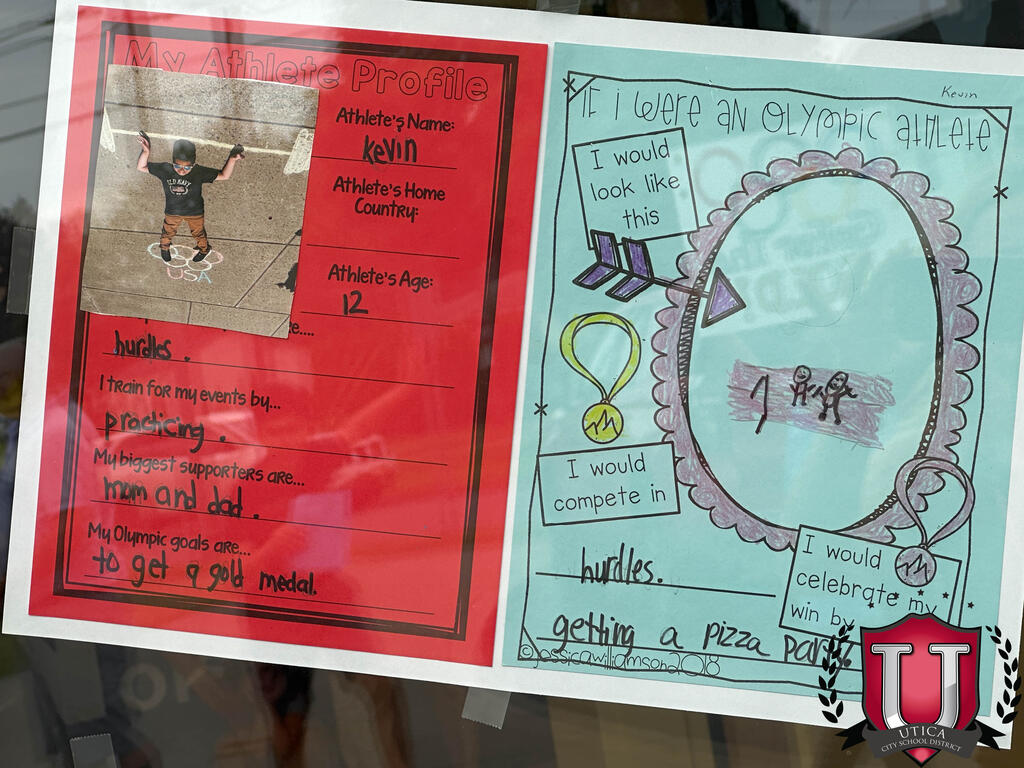 My Athlete Profile
Athlete's Name:
Kevin
Athlete's Home
Country:
Athlete's Age:
12
hurdles.
I train for my events by...
practicing.
My biggest supporters are...
mom and dad.
My Olympic goals are...
to get a gold medal.
USA
OLD NAVY
Kevin
IF i WERE AN OLYMPIC ATHLETE
I would
look like
this
1
I would
compete in
hurdles.
I would
celebrate my
win by
getting a pizza party
©jessicawilliamson2018
U
UTICA
CITY SCHOOL DISTRICT